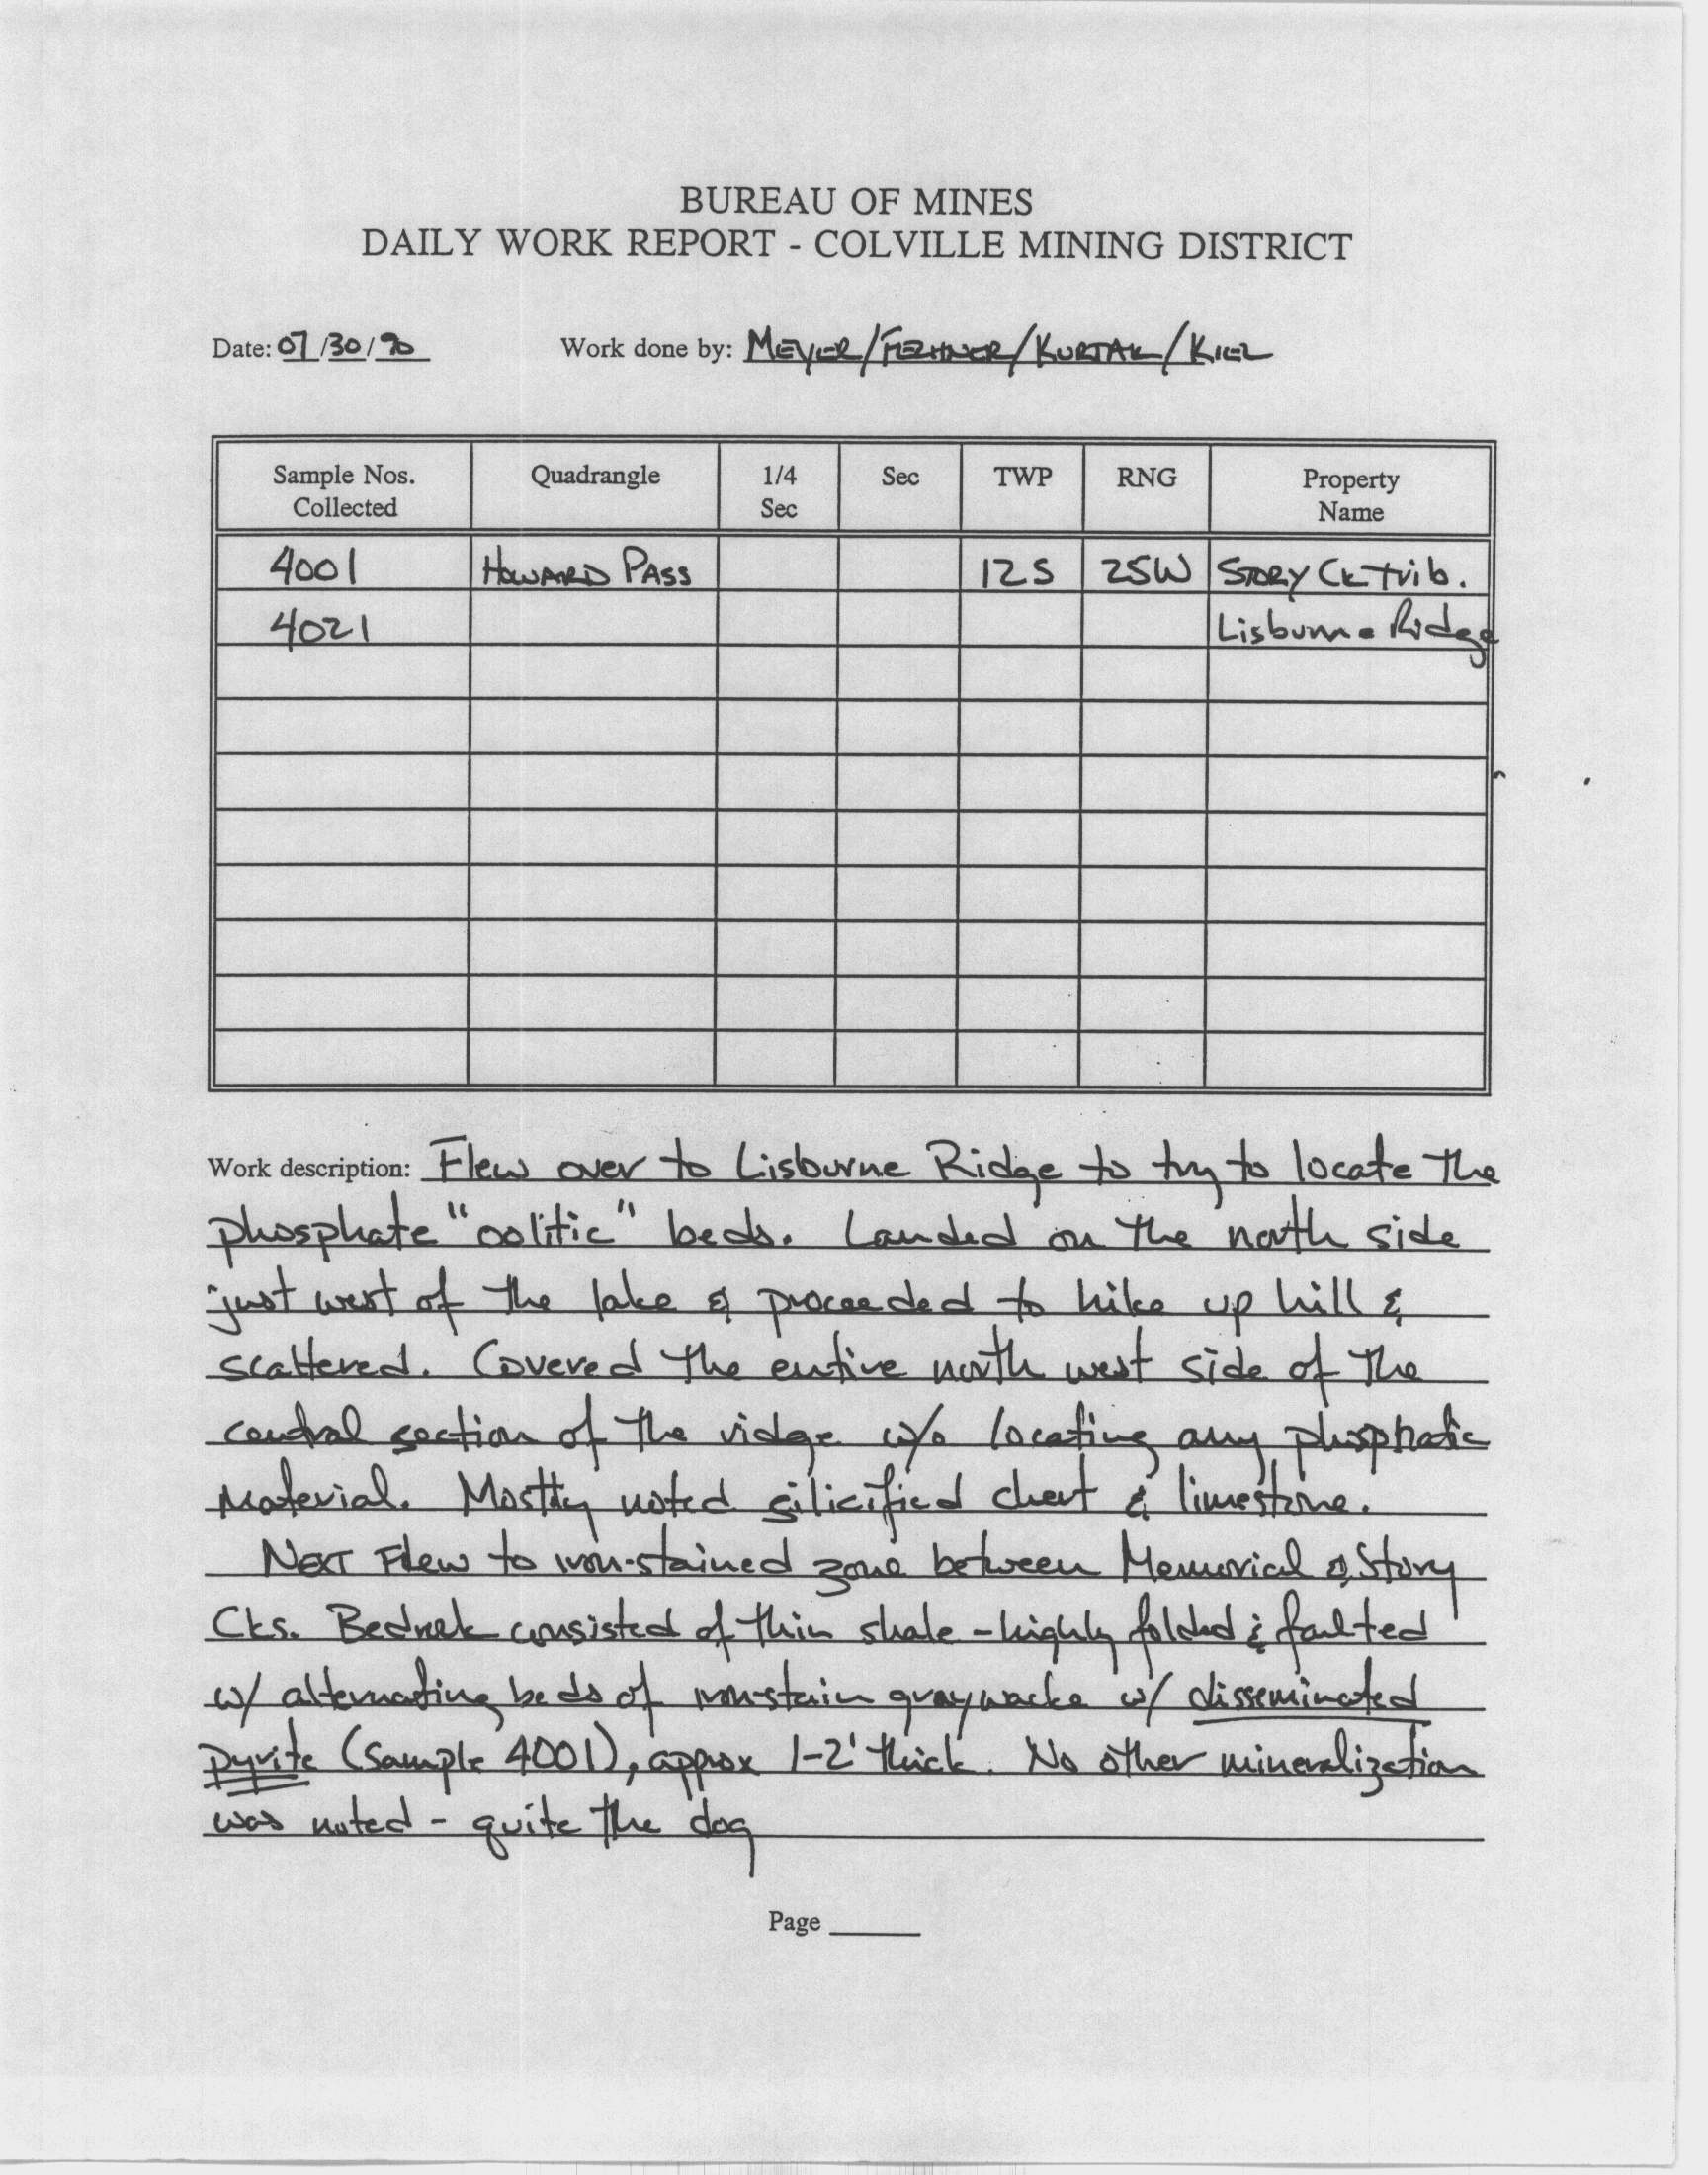 BUREAU OF MINES
DAILY WORK REPORT - COLVILLE MINING DISTRICT
Date: 07/30/90 Work done by: MEYER/FECHNER/KURTAK/KIEL
Sample Nos. Collected Quadrangle 1/4 Sec Sec TWP RNG Property Name
4001 HOWARD PASS 12S 25W STORY CK Trib.
4021 Lisburne Ridge
Work description: Flew over to Lisburne Ridge to try to locate the
phosphate "oolitic" beds. Landed on the north side
just west of the lake & proceeded to hike up hill &
scattered. Covered the entire north west side of the
central section of the ridge w/o locating any phosphatic
material. Mostly noted silicified chert & limestone.
NEXT Flew to iron-stained zone between Memorial & Story
Cks. Bedrock consisted of thin shale - highly folded & faulted
w/ alternating beds of iron-stain graywacke w/ disseminated
pyrite (sample 4001), approx 1-2' thick. No other mineralization
was noted - quite the dog
Page